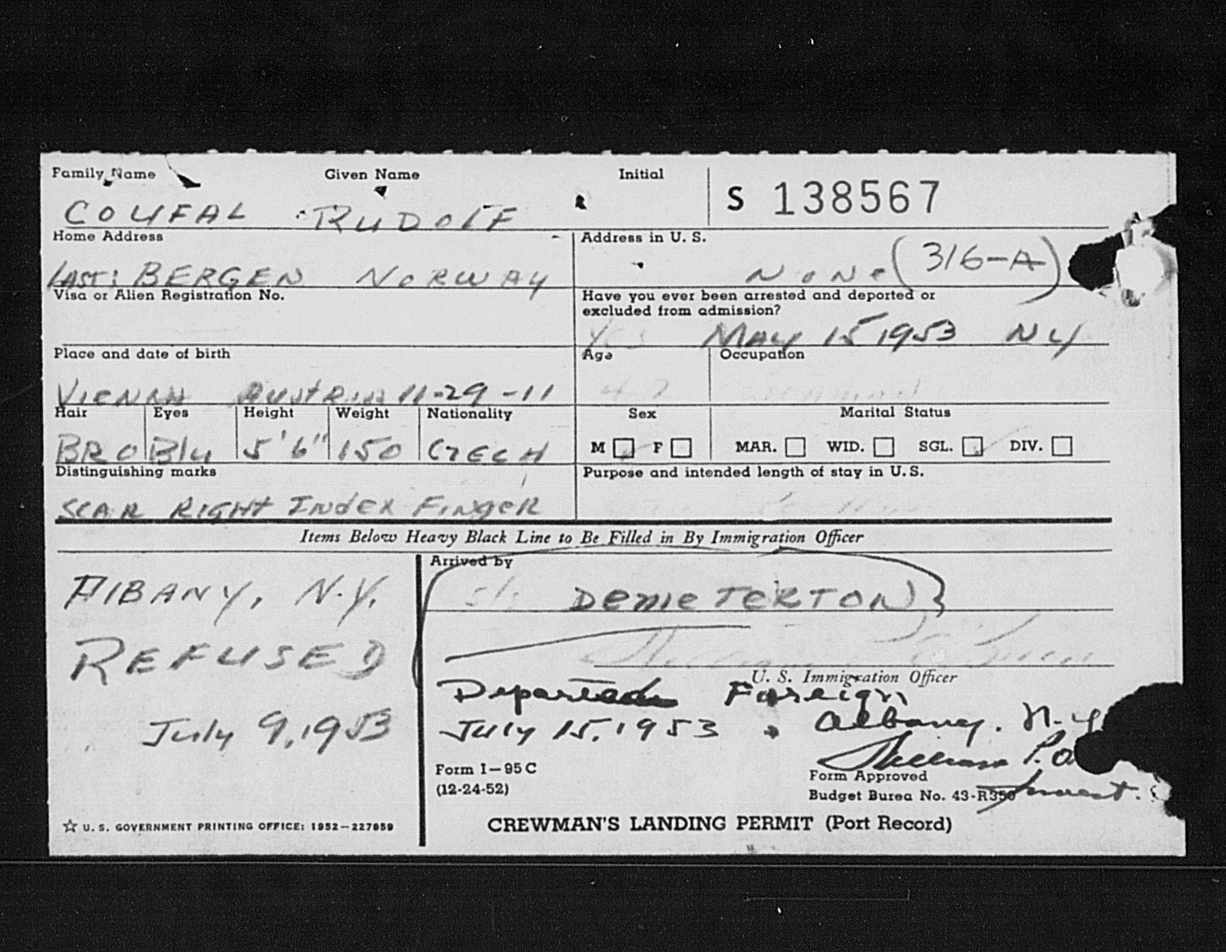 Family Name Given Name Initial S 138567
COUFAL RUDOLF
Home Address Address in U. S.
LAST: BERGEN NORWAY NONE (316-A)
Visa or Alien Registration No. Have you ever been arrested and deported or
excluded from admission?
Yes May 15, 1953 NY
Place and date of birth Age Occupation
VIENNA AUSTRIA 11-29-11
Hair Eyes Height Weight Nationality Sex Marital Status
BRO Blu 5'6" 150 CZECH M F MAR. WID. SGL. DIV.
Distinguishing marks Purpose and intended length of stay in U. S.
SCAR RIGHT INDEX FINGER
Items Below Heavy Black Line to Be Filled in By Immigration Officer
Arrived by
AlBANY, N.Y. DEMETERTON
REFUSED
U. S. Immigration Officer
Departed Foreign
July 9, 1953 July 15, 1953 Albany, N.Y.
William P. O
Form I-95 C Form Approved
(12-24-52) Budget Burea No. 43-R350 Invest.
☆ U. S. GOVERNMENT PRINTING OFFICE: 1952-227959 CREWMAN'S LANDING PERMIT (Port Record)